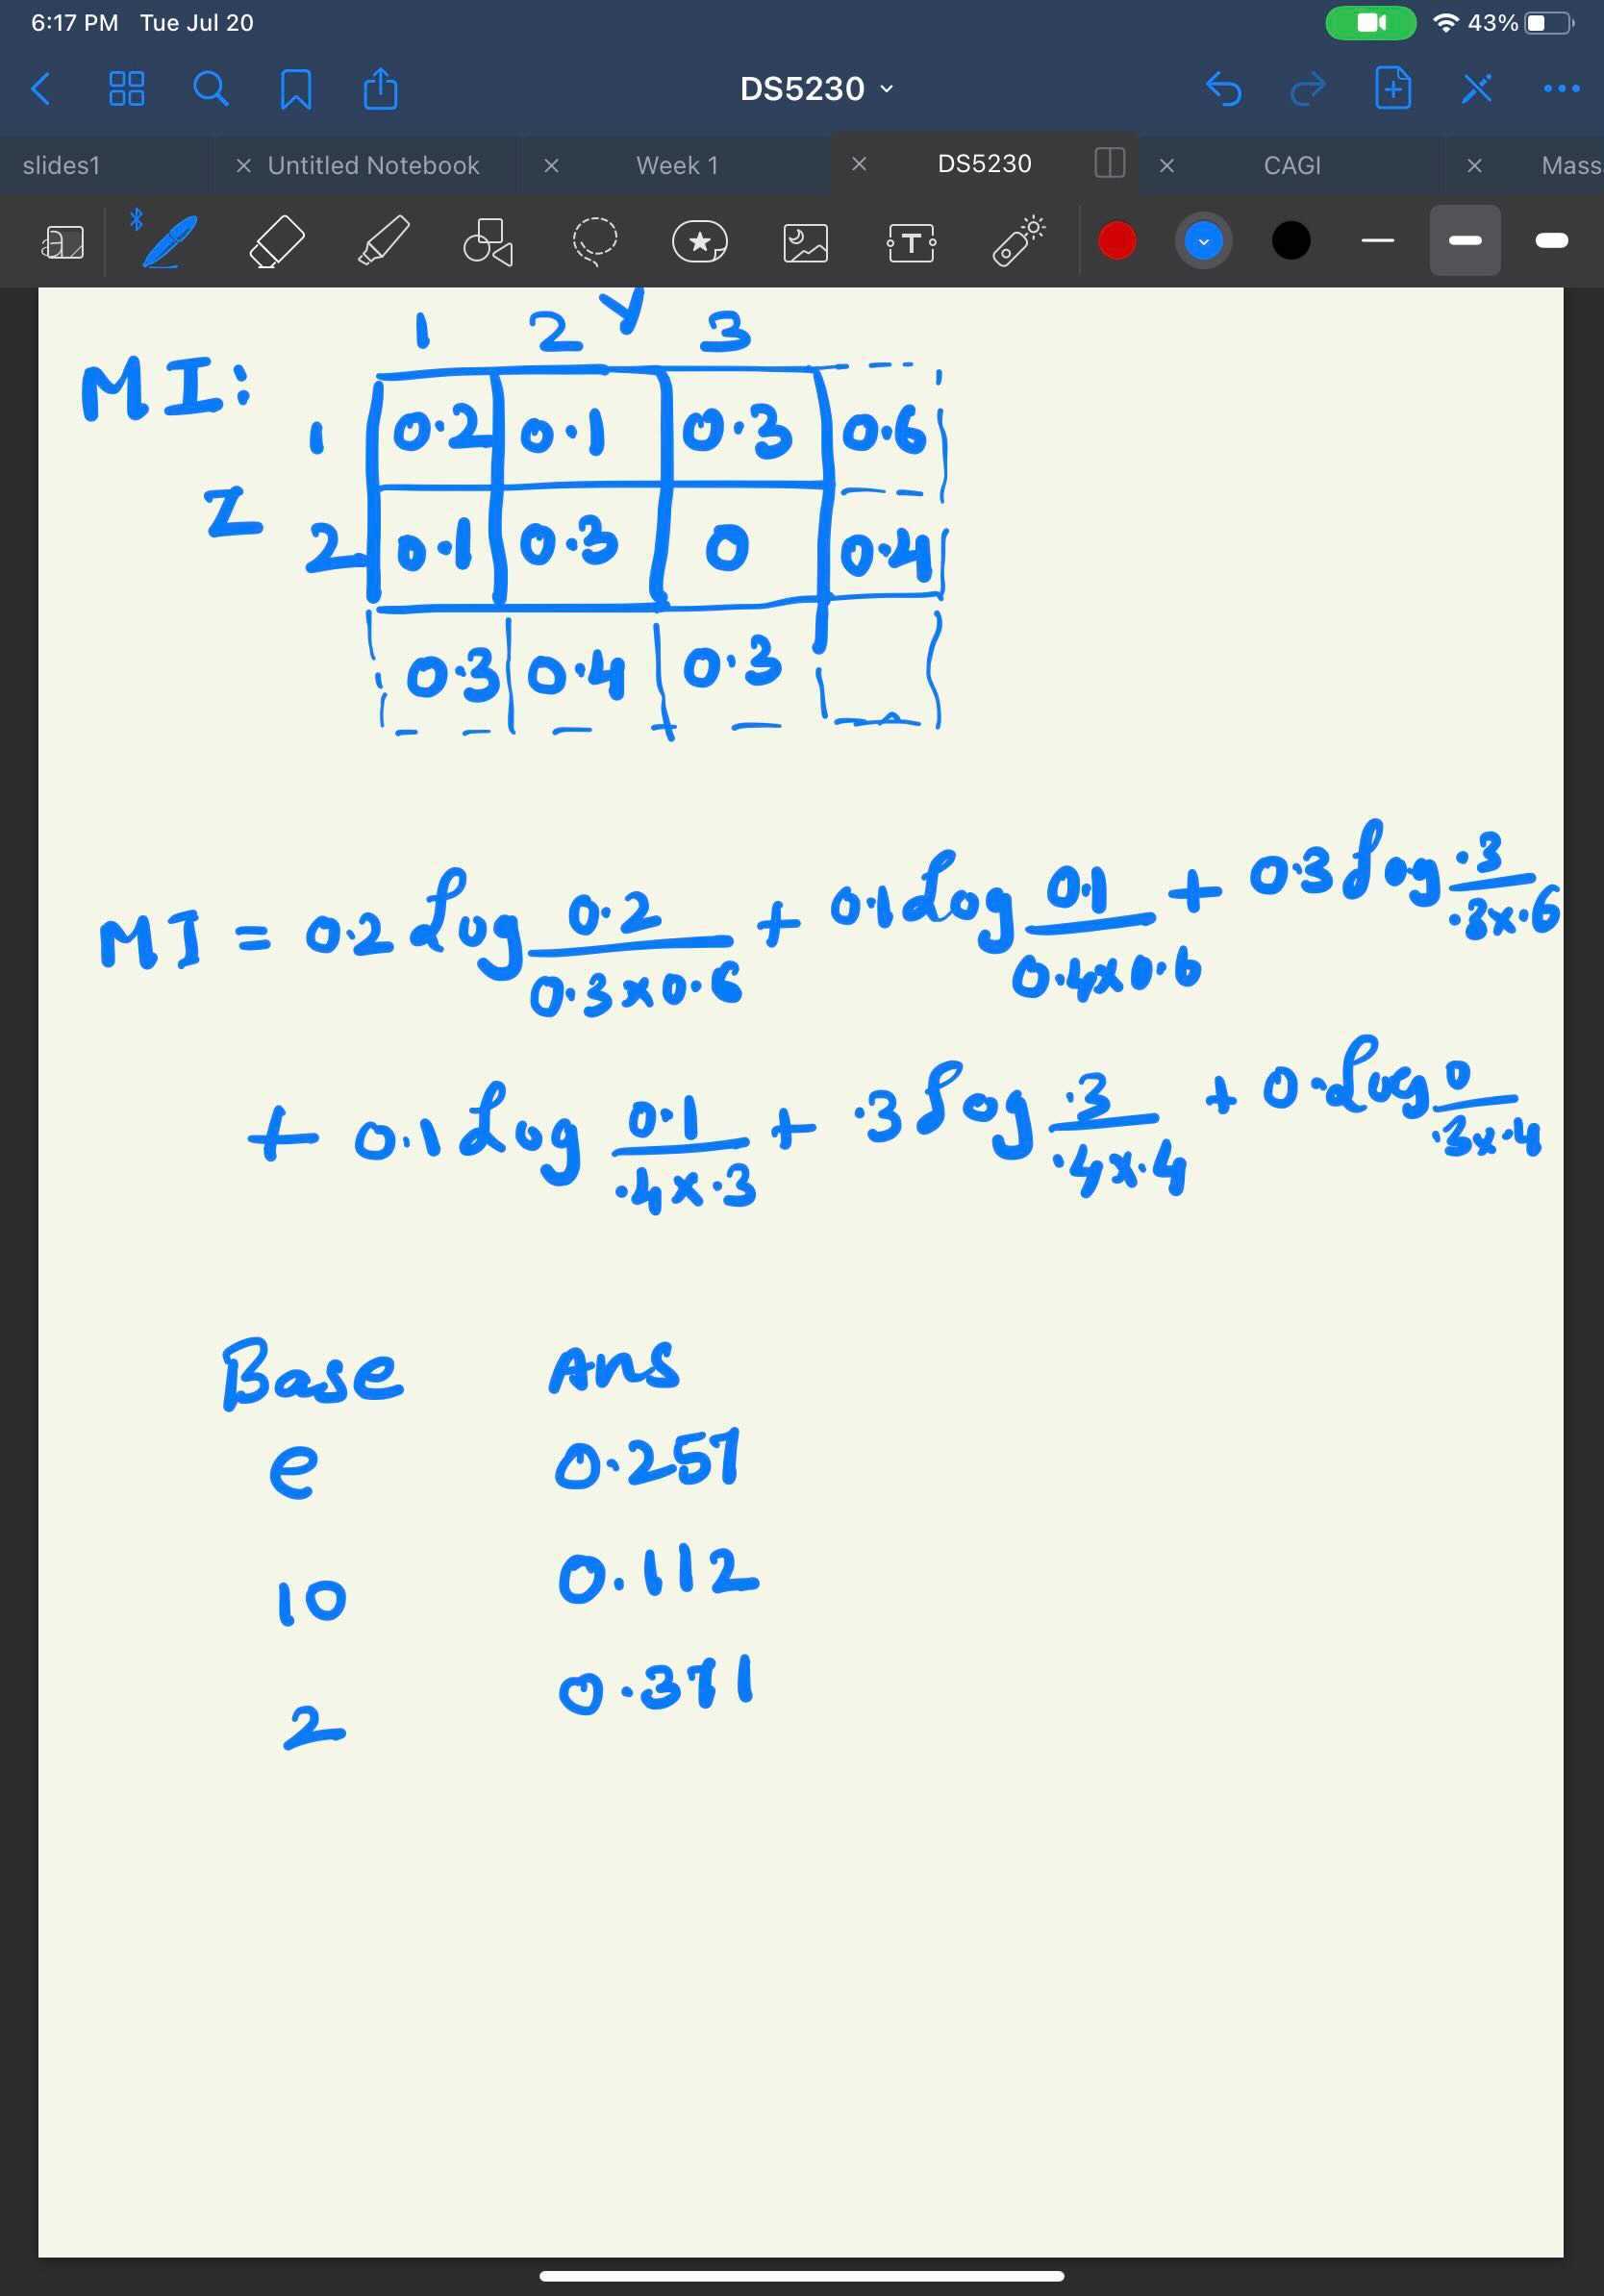 6:17 PM Tue Jul 20 43%
DS5230
slides1 Untitled Notebook Week 1 DS5230 CAGI Mass
T
1 2 Y 3
MI:
1 0.2 0.1 0.3 0.6
Z
2 0.1 0.3 0 0.4
0.3 0.4 0.3
MI = 0.2 log 0.2/0.3x0.6 + 0.1 log 0.1/0.4x0.6 + 0.3 log .3/.3x.6
+ 0.1 log 0.1/.4x.3 + .3 log .3/.4x.4 + 0.log 0/.3x.4
Base Ans
e 0.257
10 0.112
2 0.371